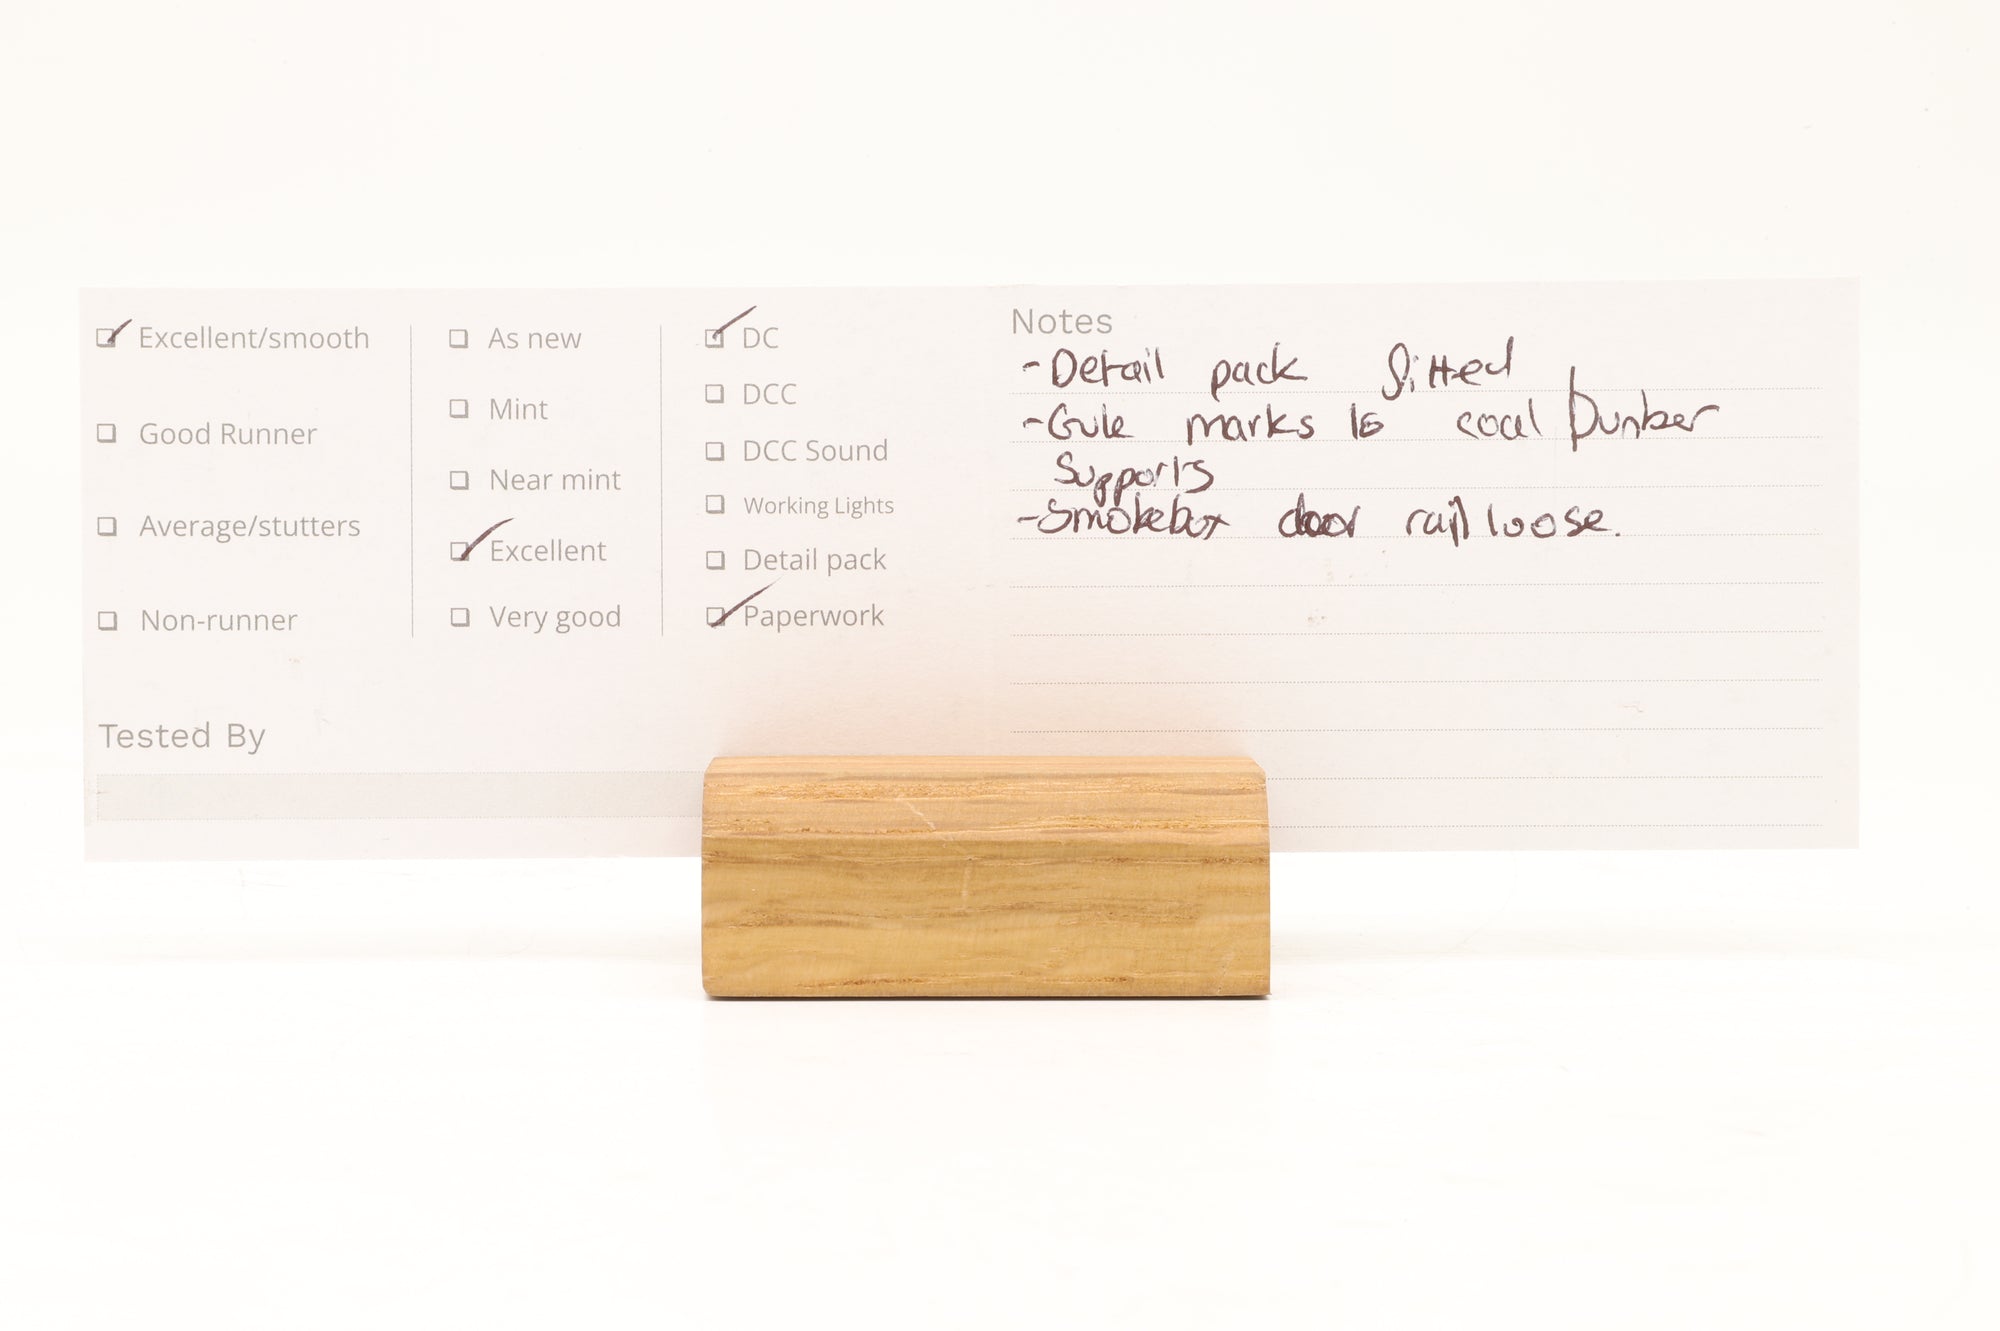 Excellent/smooth
Good Runner
Average/stutters
Non-runner
As new
Mint
Near mint
Excellent
Very good
DC
DCC
DCC Sound
Working Lights
Detail pack
Paperwork
Tested By
Notes
-Detail pack fitted
-Gule marks to coal bunker
supports
-Smokebox door rail loose.